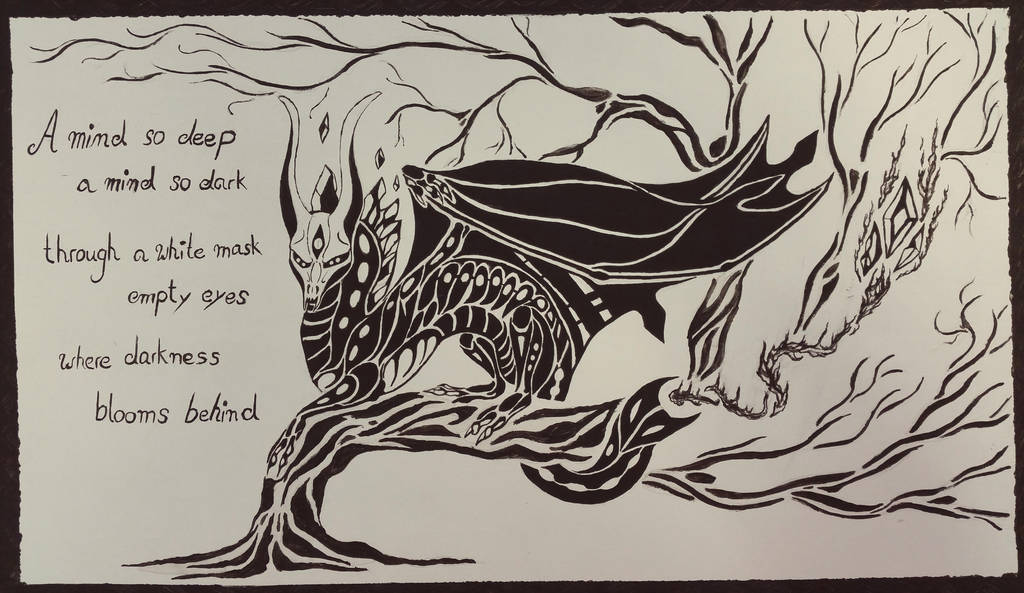 A mind so deep
a mind so dark
through a white mask
empty eyes
where darkness
blooms behind